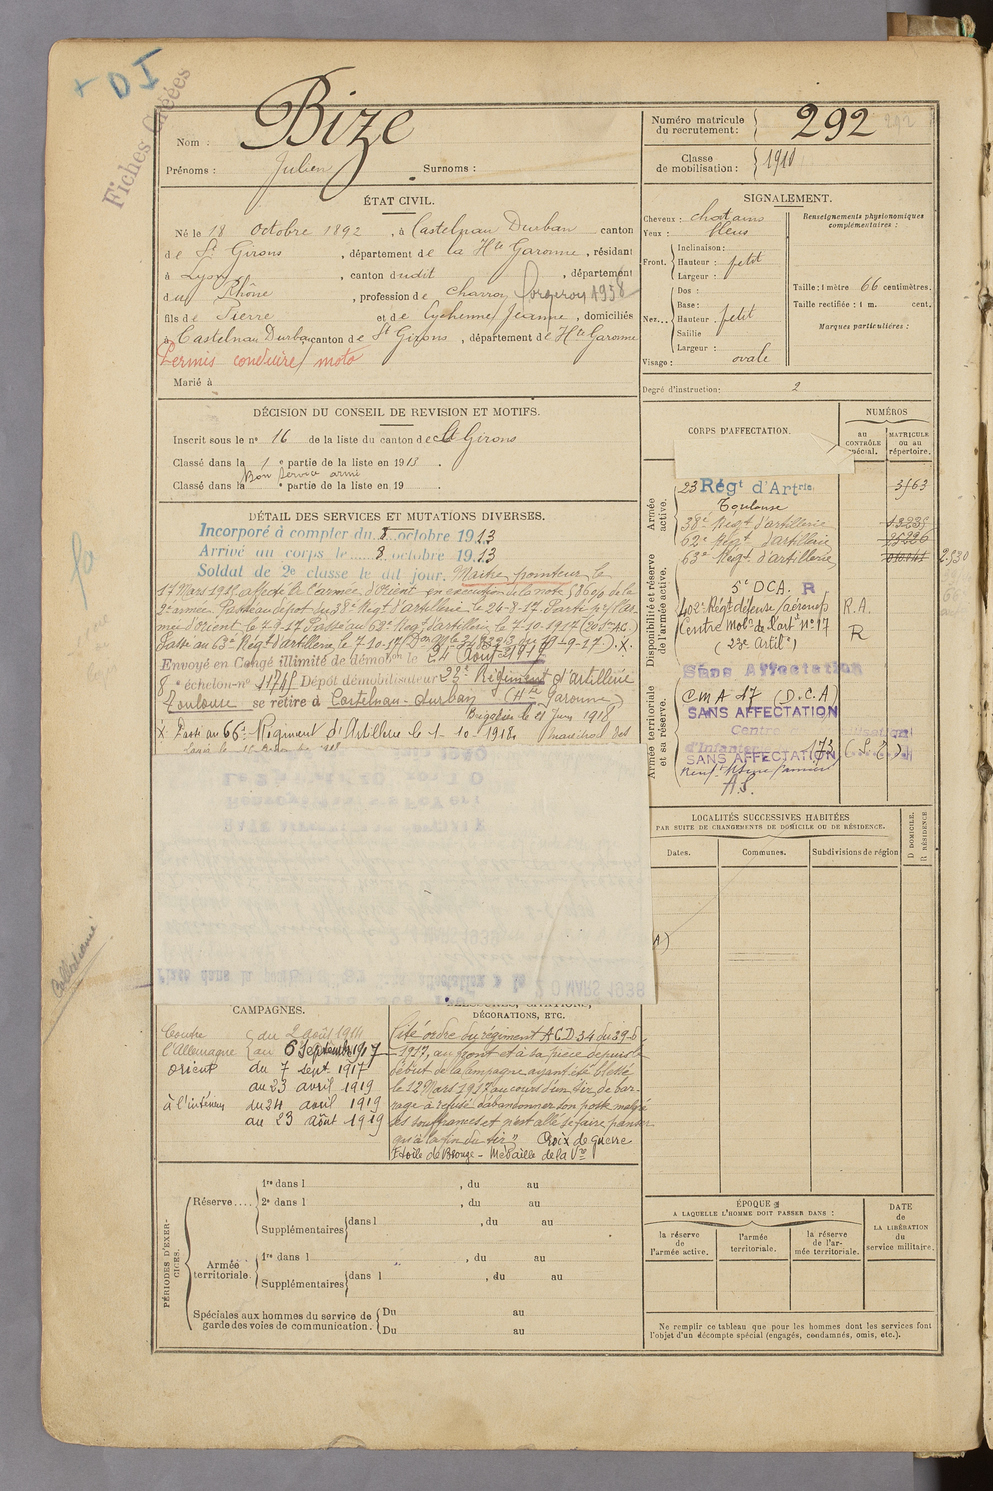 + DI
Fiches Créées
Nom : Bize
Prénoms : Julien Surnoms :
Numéro matricule
du recrutement : 292
Classe
de mobilisation : 1910
ÉTAT CIVIL.
Né le 18 Octobre 1892, à Castelnau Durban canton
de St Girons, département de la Hte Garonne, résidant
à Lyon, canton dudit, département
du Rhône, profession de charron forgeron 1938
fils de Pierre et de Eychenne Jeanne, domiciliés
à Castelnau Durban canton de St Girons, département de Hte Garonne
Permis conduire moto
Marié à
SIGNALEMENT.
Cheveux : chatains
Yeux : bleus
Front. Inclinaison :
Hauteur : petit
Largeur :
Nez... Dos :
Base :
Hauteur : petit
Saillie
Largeur :
Visage : ovale
Renseignements physionomiques
complémentaires :
Taille : 1 mètre 66 centimètres.
Taille rectifiée : 1 m. cent.
Marques particulières :
Degré d'instruction : 2
DÉCISION DU CONSEIL DE REVISION ET MOTIFS.
Inscrit sous le no 16 de la liste du canton de St Girons
Classé dans la 1e partie de la liste en 1913.
Bon Service armé
Classé dans la e partie de la liste en 19 .
DÉTAIL DES SERVICES ET MUTATIONS DIVERSES.
Incorporé à compter du 8 octobre 1913
Arrivé au corps le 8 octobre 1913
Soldat de 2e classe le dit jour. Maitre pointeur le
17 Mars 1915 affecté à l'armée d'Orient en exécution de la note 58606 de la
2e armée. Passé au dépôt du 38e Régt d'artillerie le 26-8-17. Parti pr l'ar-
mée d'orient le 7-9-17. Passé au 62e Régt d'artillerie le 7-10-1917
Passé au 63e Régt d'artillerie le 7-10-17 du 29-9-17). X.
Envoyé en Congé illimité de démobon le 24 Août 1919
8e échelon-no 11745 Dépôt démobilisateur 23e Régiment d'artillerie
Toulouse se retire à Castelnau-durban (Hte Garonne)
Brigadier le 21 Juin 1918
X Passé au 66e Régiment d'Artillerie le 1-10-1918. Maréchal des
Logis le
20 MARS 1938
CORPS D'AFFECTATION.
NUMÉROS
au CONTRÔLE spécial.
MATRICULE ou au répertoire.
Armée active.
23 Régt d'Artrie 3763
Toulouse
38e Régt d'artillerie
62e Régt d'artillerie
63e Régt d'artillerie
Disponibilité et réserve de l'armée active.
5e DCA. R
402e Régt défense/aéronefs R.A.
Centre Mobe de l'art no 17 R
(23e Artilie)
Sans Affectation
Armée territoriale et sa réserve.
CMA 17 (D.C.A)
SANS AFFECTATION
Centre
d'Infanterie 173
SANS AFFECTATION
A.S.
LOCALITÉS SUCCESSIVES HABITÉES
PAR SUITE DE CHANGEMENTS DE DOMICILE OU DE RÉSIDENCE.
Dates. Communes. Subdivisions de région
D DOMICILE. R RÉSIDENCE
CAMPAGNES.
Contre du 2 août 1914
l'Allemagne au 6 Septembre 1917
Orient du 7 sept 1917
au 23 avril 1919
à l'intérieur du 24 avril 1919
au 23 août 1919
BLESSURES, CITATIONS,
DÉCORATIONS, ETC.
Cité ordre du régiment ACD 34 du 29-6
1917, au front et à sa pièce depuis le
début de la campagne ayant été blessé
le 12 Mars 1917 au cours d'un tir de bar-
rage a refusé d'abandonner son poste malgré
ses souffrances et n'est allé se faire panser
qu'à la fin du tir". Croix de guerre
Etoile de Bronze - Médaille de la Vre
PÉRIODES D'EXERCICES.
Réserve.... 1re dans l , du au
2e dans l , du au
Supplémentaires dans l , du au
Armée territoriale. 1re dans l , du au
Supplémentaires dans l , du au
Spéciales aux hommes du service de
garde des voies de communication. Du au
Du au
ÉPOQUE
A LAQUELLE L'HOMME DOIT PASSER DANS :
la réserve de l'armée active.
l'armée territoriale.
la réserve de l'armée territoriale.
DATE
de
LA LIBÉRATION
du
service militaire.
Ne remplir ce tableau que pour les hommes dont les services font
l'objet d'un décompte spécial (engagés, condamnés, omis, etc.).